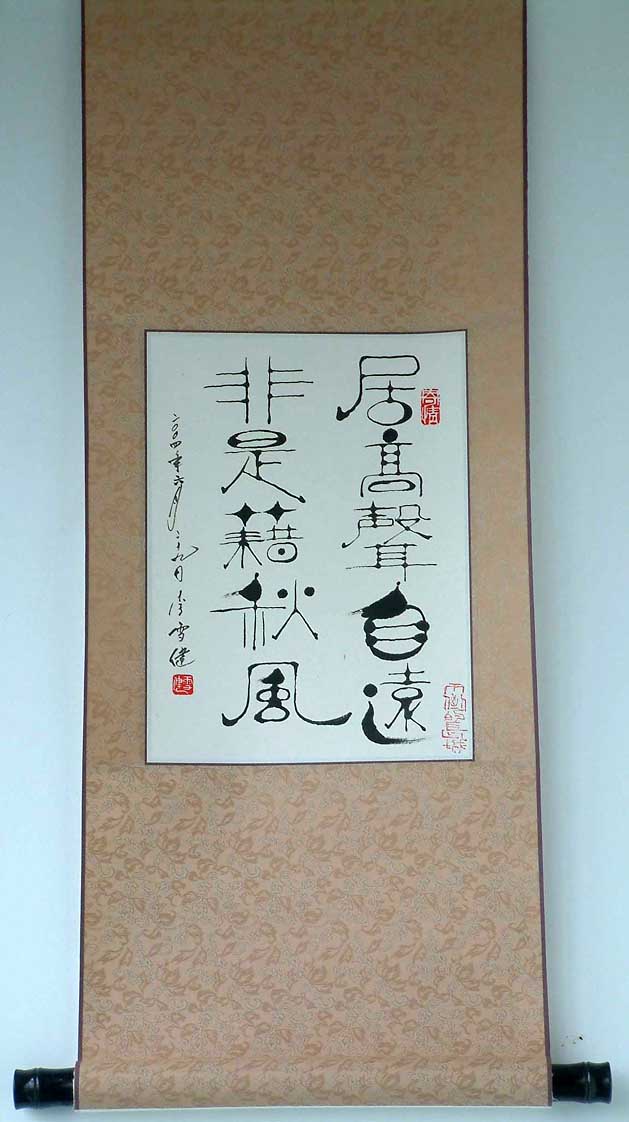 居高聲自遠
非是藉秋風
二〇〇四年六月二十九日李雪健